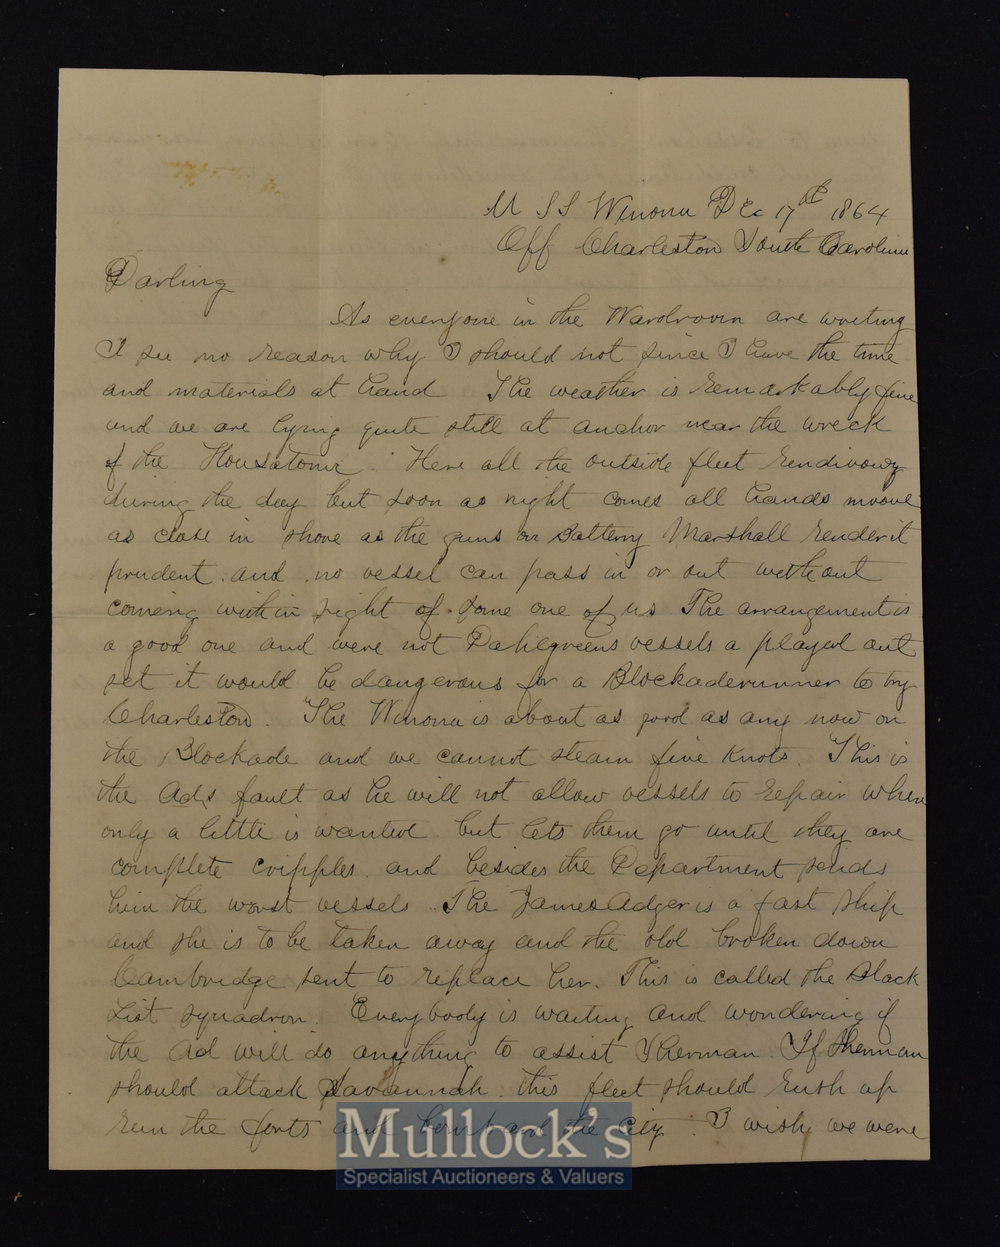 U S S Winona Dec 17th 1864
Off Charleston South Carolina
Darling
As everyone in the Wardroom are writing
I see no reason why I should not since I have the time
and materials at hand The weather is remarkably fine
and we are lying quite still at anchor near the wreck
of the Housatonic. Here all the outside fleet
during the day but soon as night comes all hands moove
as close in shore as the guns on Battery Marshall render it
prudent. and no vessel can pass in or out without
coming within sight of some one of us The arrangement is
a good one and were not Dahlgreens vessels a played out
set it would be dangerous for a Blockaderunner to try
Charleston. The Winona is about as good as any now on
the Blockade and we cannot steam five knots. This is
the Ads fault as he will not allow vessels to repair when
only a little is wanted but lets them go until they are
complete cripples. and besides the Department sends
him the worst vessels. The James Adger is a fast ship
and she is to be taken away and the old broken down
Cambridge sent to replace her. This is called the Black
List squadron. Everybody is waiting and wondering if
the Ad will do anything to assist Sherman. If Sherman
should attack Savannah this fleet should rush up
run the forts and bombard the City. I wish we were
Mullock's
Specialist Auctioneers & Valuers